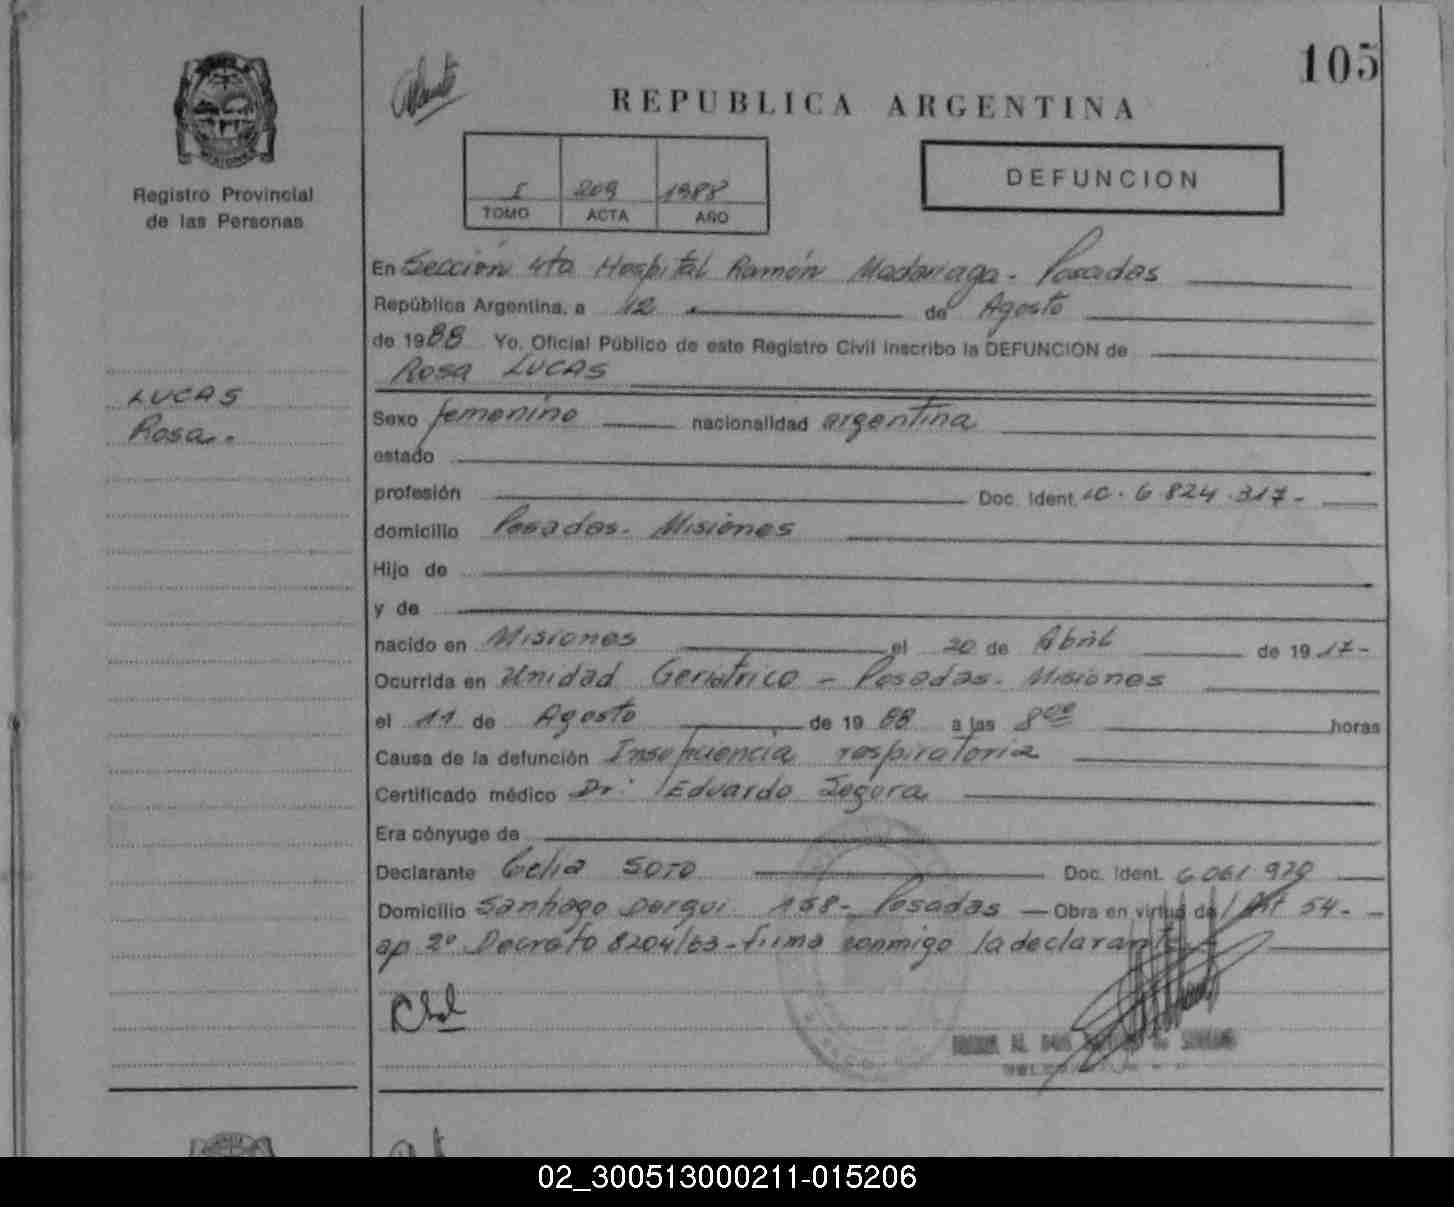 105
REPUBLICA ARGENTINA
Registro Provincial
de las Personas
I 209 1988
TOMO ACTA AÑO
DEFUNCION
En Sección 4ta Hospital Ramón Madariaga - Posadas
República Argentina, a 12 de Agosto
de 1988 Yo, Oficial Público de este Registro Civil inscribo la DEFUNCION de
Rosa LUCAS
LUCAS
Rosa..
Sexo femenino nacionalidad argentina
estado
profesión Doc. Ident. LC. 6.824.317-
domicilio Posadas - Misiones
Hijo de
y de
nacido en Misiones el 20 de Abril de 1917-
Ocurrida en Unidad Geriatrico - Posadas - Misiones
el 11 de Agosto de 1988 a las 8 00 horas
Causa de la defunción Insuficiencia respiratoria
Certificado médico Dr. Eduardo Segora
Era cónyuge de
Declarante Celia SOTO Doc. Ident. 6061970
Domicilio Santiago Derqui 158 - Posadas - Obra en virtud de Art 54-
ap. 2º Decreto 8204/63 - firma conmigo la declarante
02_300513000211-015206